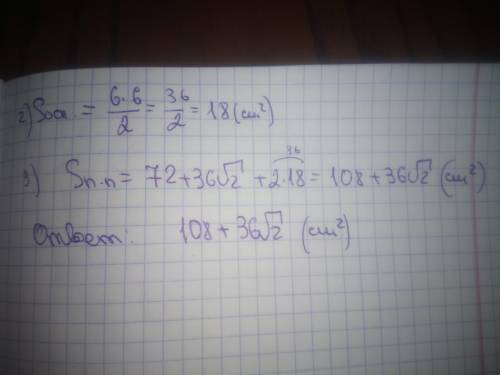 2) Sосн. = 6·6/2 = 36/2 = 18 (см²)
36
3) Sп.п = 72 + 36√2 + 2·18 = 108 + 36√2 (см²)
Ответ: 108 + 36√2 (см²)